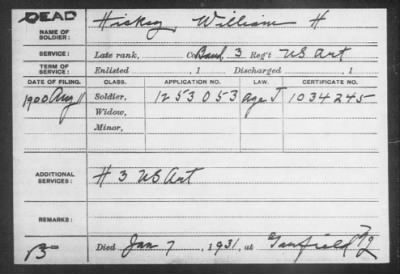 DEAD
NAME OF SOLDIER: Hiskey, William H
SERVICE: Late rank, Co. Band, 3 Reg't US Art
TERM OF SERVICE: Enlisted , 1 Discharged , 1
DATE OF FILING. CLASS. APPLICATION NO. LAW. CERTIFICATE NO.
1900 Aug 11 Soldier, 1253053 age J 1034245
Widow,
Minor,
ADDITIONAL SERVICES: H 3 US Art
REMARKS:
Died Jan 7, 1931, at Garfield